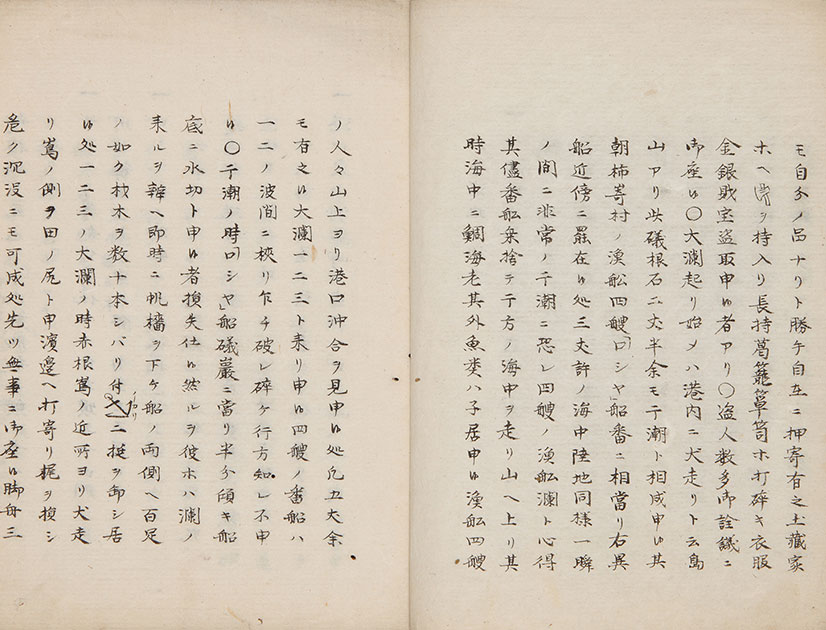 モ自分ノ品ナリト勝手自在ニ押寄有之土藏家
ホヘ滯ヲ持入リ長持葛籠簞笥ホ打碎キ衣服
金銀財宝盗取申候者アリ〇盗人数多御詮議ニ
御座候〇大瀾起リ始メハ港内ニ犬走リト云島
山アリ此礒根石二丈半余モ干潮ト相成申候其
朝柿嵜村ノ漁舩四艘「ロシヤ」船番ニ相當リ右異
船近傍ニ罷在候処三丈許ノ海中陸地同様一瞬
ノ間ニ非常ノ干潮ニ恐レ四艘ノ漁舩瀾ト心得
其儘番舩乗捨テ干方ノ海中ヲ走リ山ヘ上リ其
時海中ニ鯛海老其外魚類ハ子居申候漁舩四艘
ノ人々山上ヨリ港口沖合ヲ見申候処凡五丈余
モ有之候大瀾一二三ト来リ申候四艘ノ番船ハ
一二ノ波間ニ挾リ乍チ破レ碎ケ行方知レ不申
候〇干潮ノ時「ロシヤ」船礒巖ニ當リ半分傾キ船
底ニ水切ト申候者損失仕候然ルヲ彼ホハ瀾ノ
来ルヲ辨ヘ即時ニ帆檣ヲ下ケ船ノ両側ヘ百足
ノ如ク材木ヲ数十本シバリ付イカリ二挺ヲ卸シ居
候処一二三ノ大瀾ノ時赤根嶌ノ近所ヨリ犬走
リ嶌ノ側ヲ田ノ尻ト申濱邊ヘ打寄リ梶ヲ損シ
危ク沉没ニモ可成処先ツ無事ニ御座候脚舟三